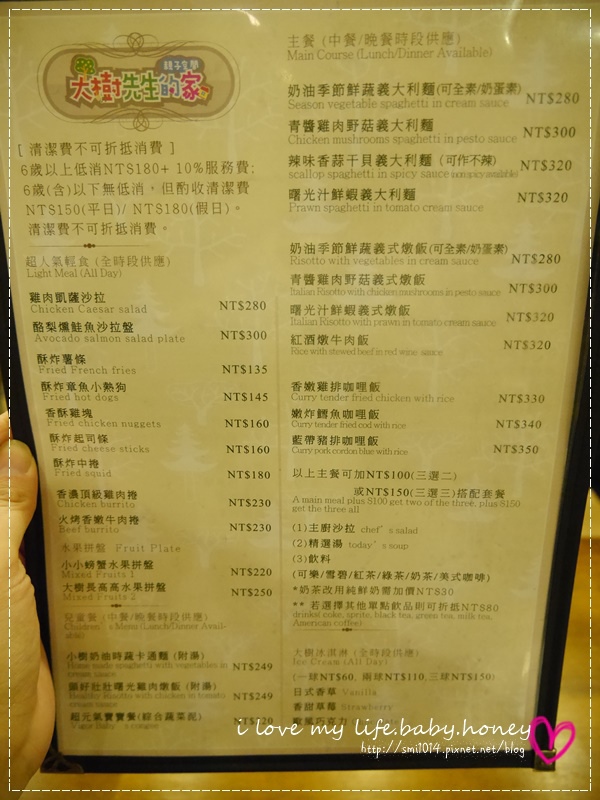 親子空間
大樹先生的家
[ 清潔費不可折抵消費 ]
6歲以上低消NTS180+ 10%服務費;
6歲(含)以下無低消，但酌收清潔費
NTS150(平日)/ NTS180(假日)。
清潔費不可折抵消費。
超人氣輕食 (全時段供應)
Light Meal (All Day)
雞肉凱薩沙拉
Chicken Caesar salad NT$280
酪梨燻鮭魚沙拉盤
Avocado salmon salad plate NT$300
酥炸薯條
Fried French fries NT$135
酥炸章魚小熱狗
Fried hot dogs NT$145
香酥雞塊
Fried chicken nuggets NT$160
酥炸起司條
Fried cheese sticks NT$160
酥炸中捲
Fried squid NT$180
香濃頂級雞肉捲
Chicken burrito NT$230
火烤香嫩牛肉捲
Beef burrito NT$230
水果拼盤 Fruit Plate
小小螃蟹水果拼盤
Mixed Fruits 1 NT$220
大樹長高高水果拼盤
Mixed Fruits 2 NT$250
兒童餐 (中餐/晚餐時段供應)
Children's Menu(Lunch/Dinner Avail-
able)
小樹奶油時蔬卡通麵 (附湯)
Home made spaghetti with vegetables in
cream sauce NT$249
曙光雞肉燉飯 (附湯)
Healthy Risotto with chicken in tomato
cream sauce NT$249
超元氣寶寶餐(綜合蔬菜泥)
主餐 (中餐/晚餐時段供應)
Main Course (Lunch/Dinner Available)
奶油季節鮮蔬義大利麵(可全素/奶蛋素)
Season vegetable spaghetti in cream sauce NT$280
青醬雞肉野菇義大利麵
Chicken mushrooms spaghetti in pesto sauce NT$300
辣味香蒜干貝義大利麵 (可作不辣)
scallop spaghetti in spicy sauce (non spicy available) NT$320
曙光汁鮮蝦義大利麵
Prawn spaghetti in tomato cream sauce NT$320
奶油季節鮮蔬義式燉飯(可全素/奶蛋素)
Risotto with vegetables in cream sauce NT$280
青醬雞肉野菇義式燉飯
Italian Risotto with chicken mushrooms in pesto sauce NT$300
曙光汁鮮蝦義式燉飯
Italian Risotto with prawn in tomato cream sauce NT$320
紅酒燉牛肉飯
Rice with stewed beef in red wine sauce NT$320
香嫩雞排咖哩飯
Curry tender fried chicken with rice NT$330
嫩炸鱈魚咖哩飯
Curry tender fried cod with rice NT$340
藍帶豬排咖哩飯
Curry pork cordon blue with rice NT$350
以上主餐可加NT$100(三選二)
或NT$150(三選三)搭配套餐
A main meal plus S100 get two of the three, plus S150
get the three all
(1)主廚沙拉 chef's salad
(2)精選湯 today's soup
(3)飲料
(可樂/雪碧/紅茶/綠茶/奶茶/美式咖啡)
*奶茶改用純鮮奶需加價NT$30
** 若選擇其他單點飲品則可折抵NT$80
drinks( coke, sprite, black tea, green tea, milk tea,
American coffee)
大樹冰淇淋 (全時段供應)
Ice Cream (All Day)
(一球NT$60, 兩球NT$110, 三球NT$150)
日式香草 Vanilla
香甜草莓 Strawberry
i love my life.baby.honey
http://smi1014.pixnet.net/blog